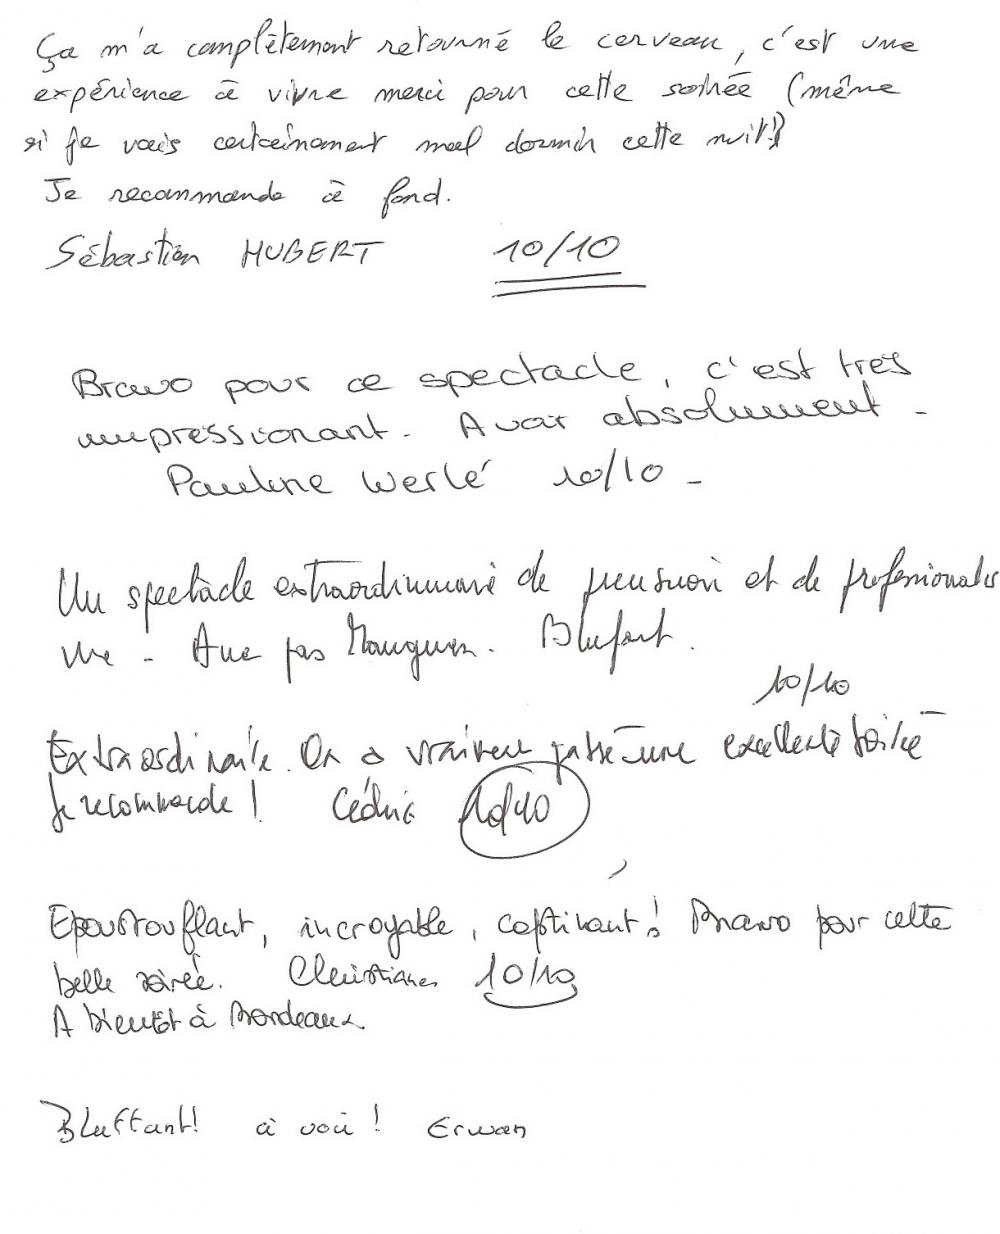 Ça m'a complètement retourné le cerveau, c'est une
expérience à vivre merci pour cette soirée (même
si je vais certainement mal dormir cette nuit!)
Je recommande à fond.
Sébastien HUBERT 10/10
Bravo pour ce spectacle, c'est très
impressionant. A voir absolument.
Pauline Werlé 10/10
Un spectacle extraordinaire de précision et de professionnalis
me. A ne pas manquer. Blufant.
10/10
Extraordinaire. On a vraiment passé une excellente soirée
Je recommande! Cédric 10/10
Epoustouflant, incroyable, captivant! Bravo pour cette
belle soirée. Christiane 10/10
A bientôt à Bordeaux.
Bluffant! à voir! Erwan